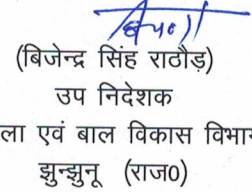 (बिजेन्द्र सिंह राठौड़)
उप निदेशक
ला एवं बाल विकास विभा
झुन्झुनू (राज0)